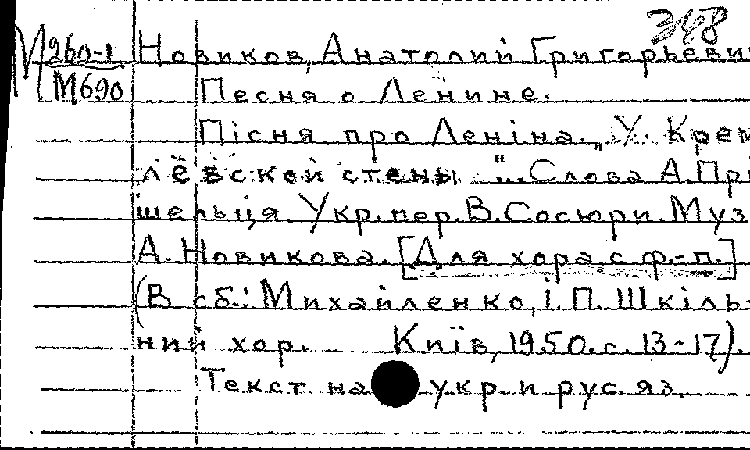 348
М 260-1 Новиков, Анатолий Григорьеви
М690 Песня о Ленине.
Пісня про Леніна. „У Крем
лёвской стены". Слова А.При
шельця. Укр.пер.В.Сосюри. Муз
А. Новикова. [Для хора с ф.-п.]
(В сб.: Михайленко, І.П. Шкіль-
ний хор. Київ, 1950. с. 13-17).
Текст на укр. и рус. яз.